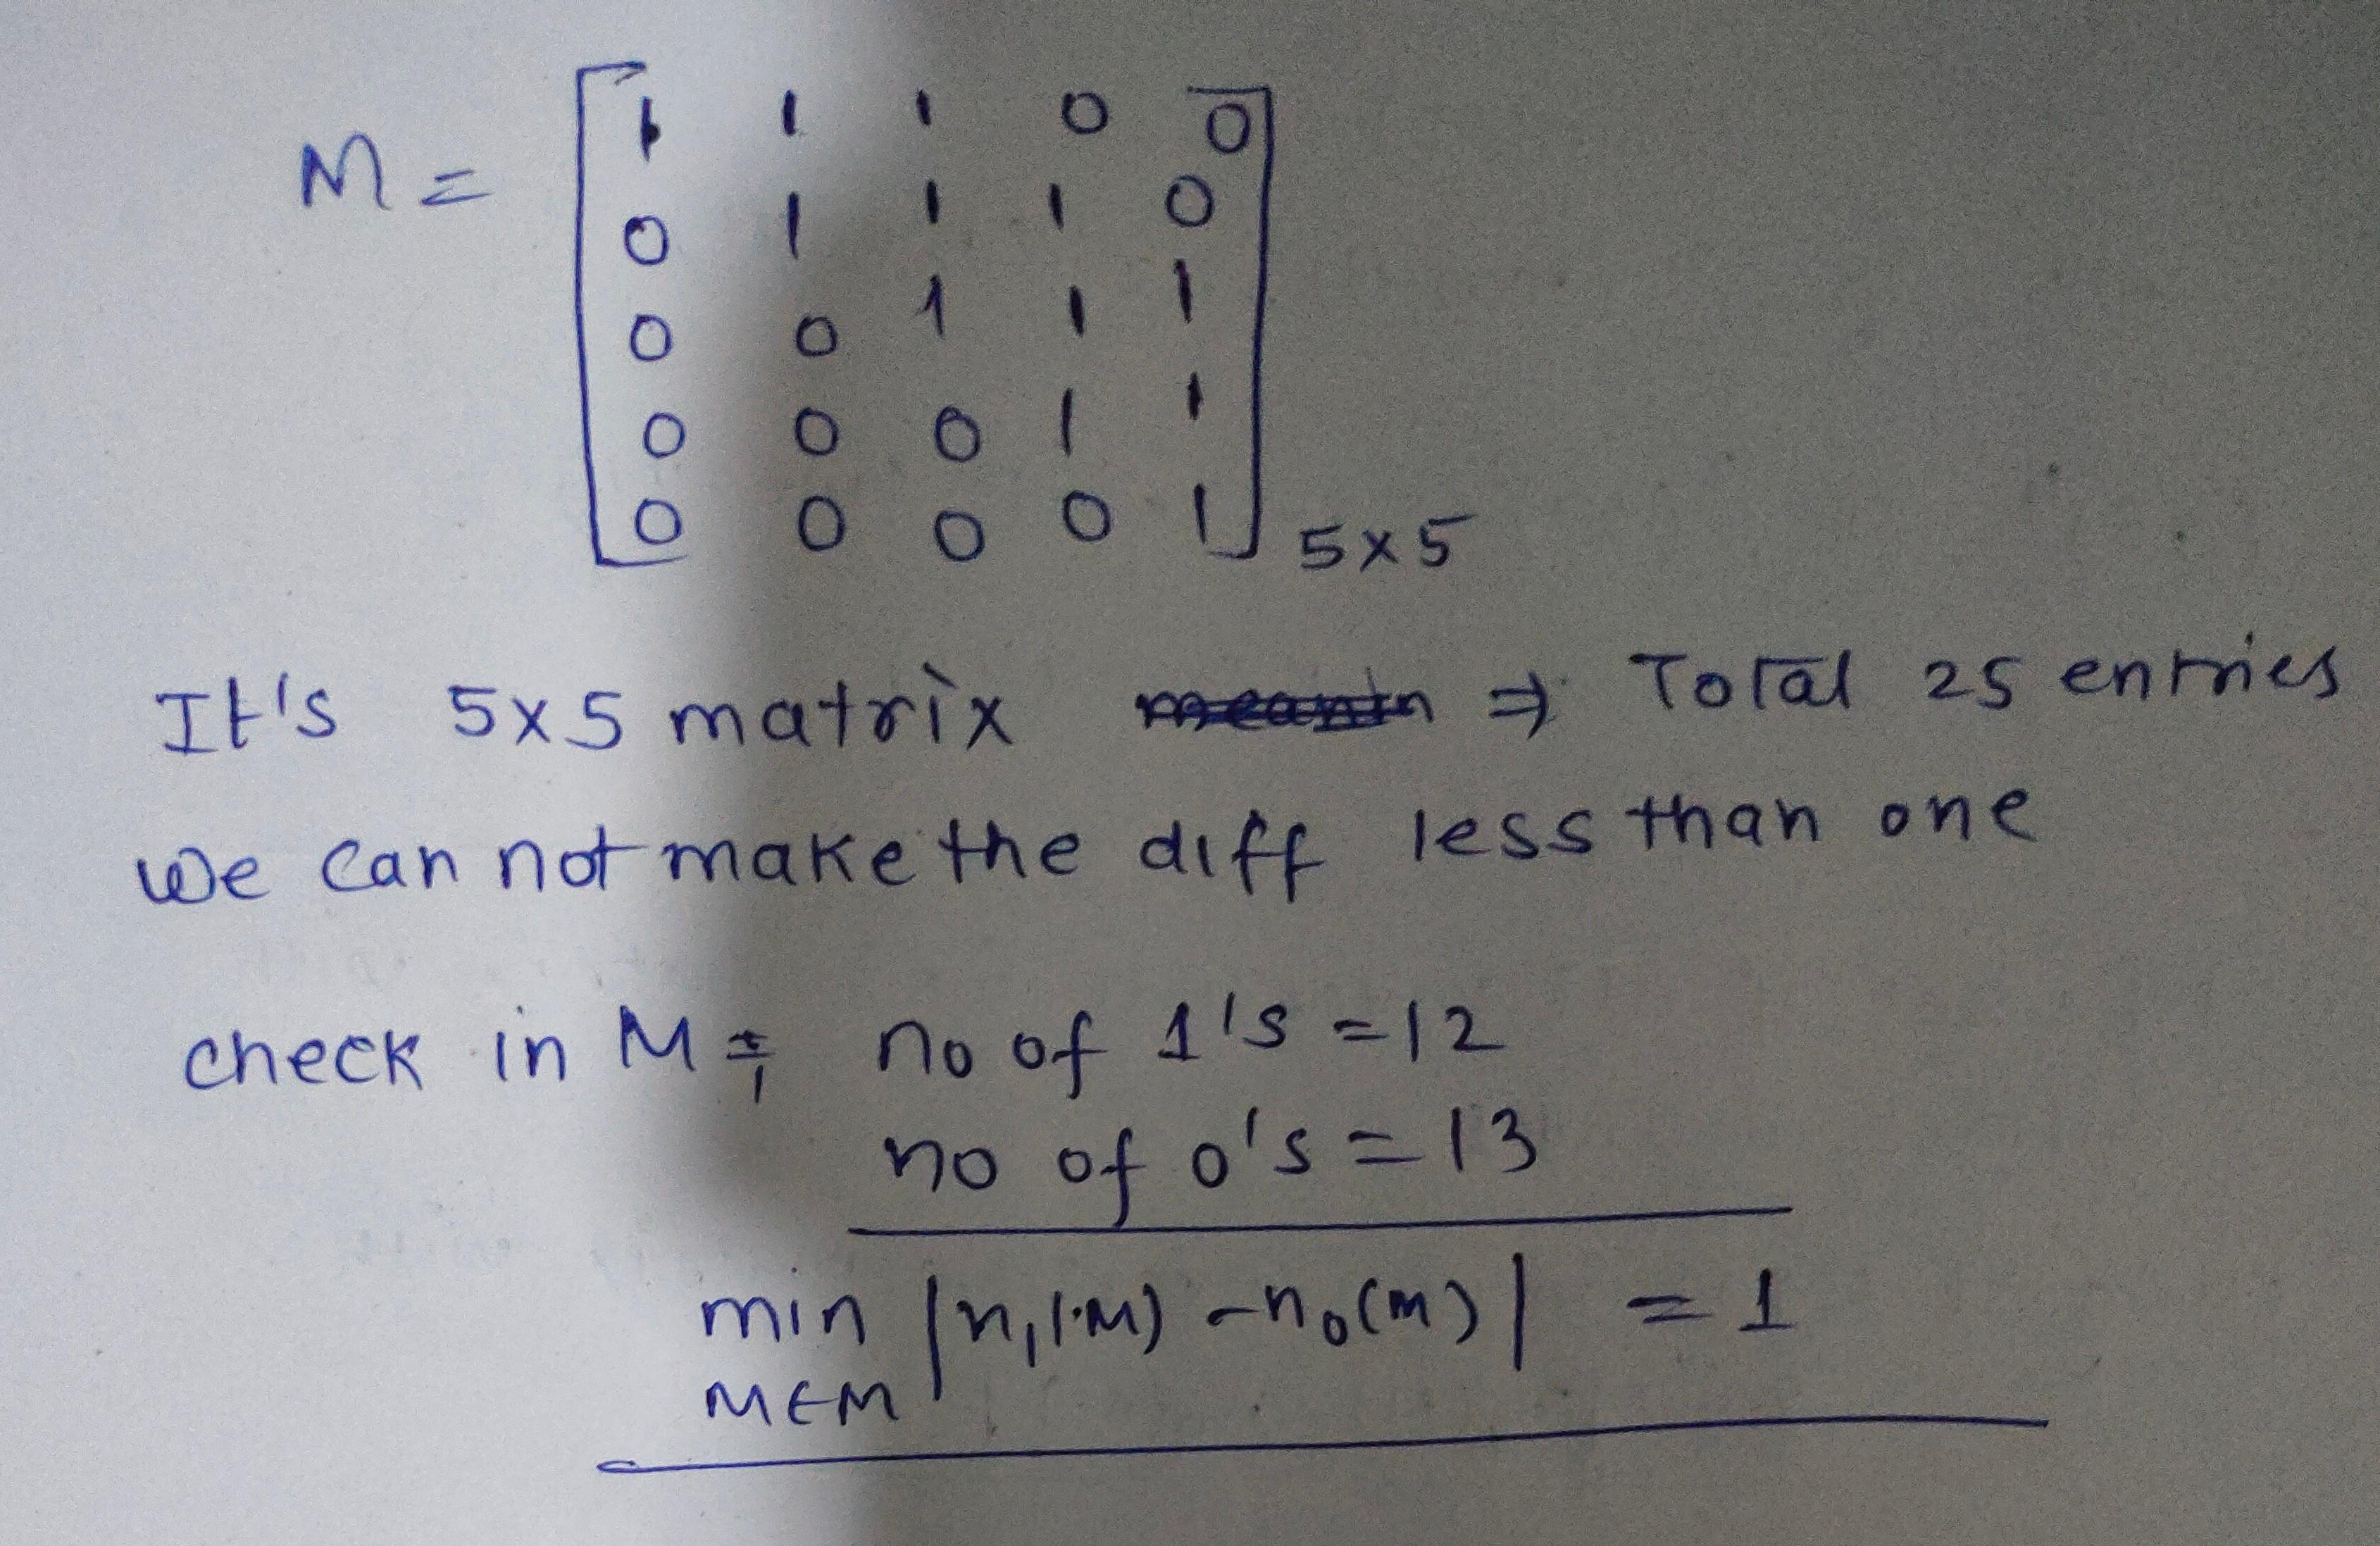 M = [ 1 1 1 0 0
0 1 1 1 0
0 0 1 1 1
0 0 0 1 1
0 0 0 0 1 ] 5x5
It's 5x5 matrix ⇒ Total 25 entries
we can not make the diff less than one
check in M, no of 1's = 12
no of 0's = 13
min |n₁(M) - n₀(M)| = 1
M∈M